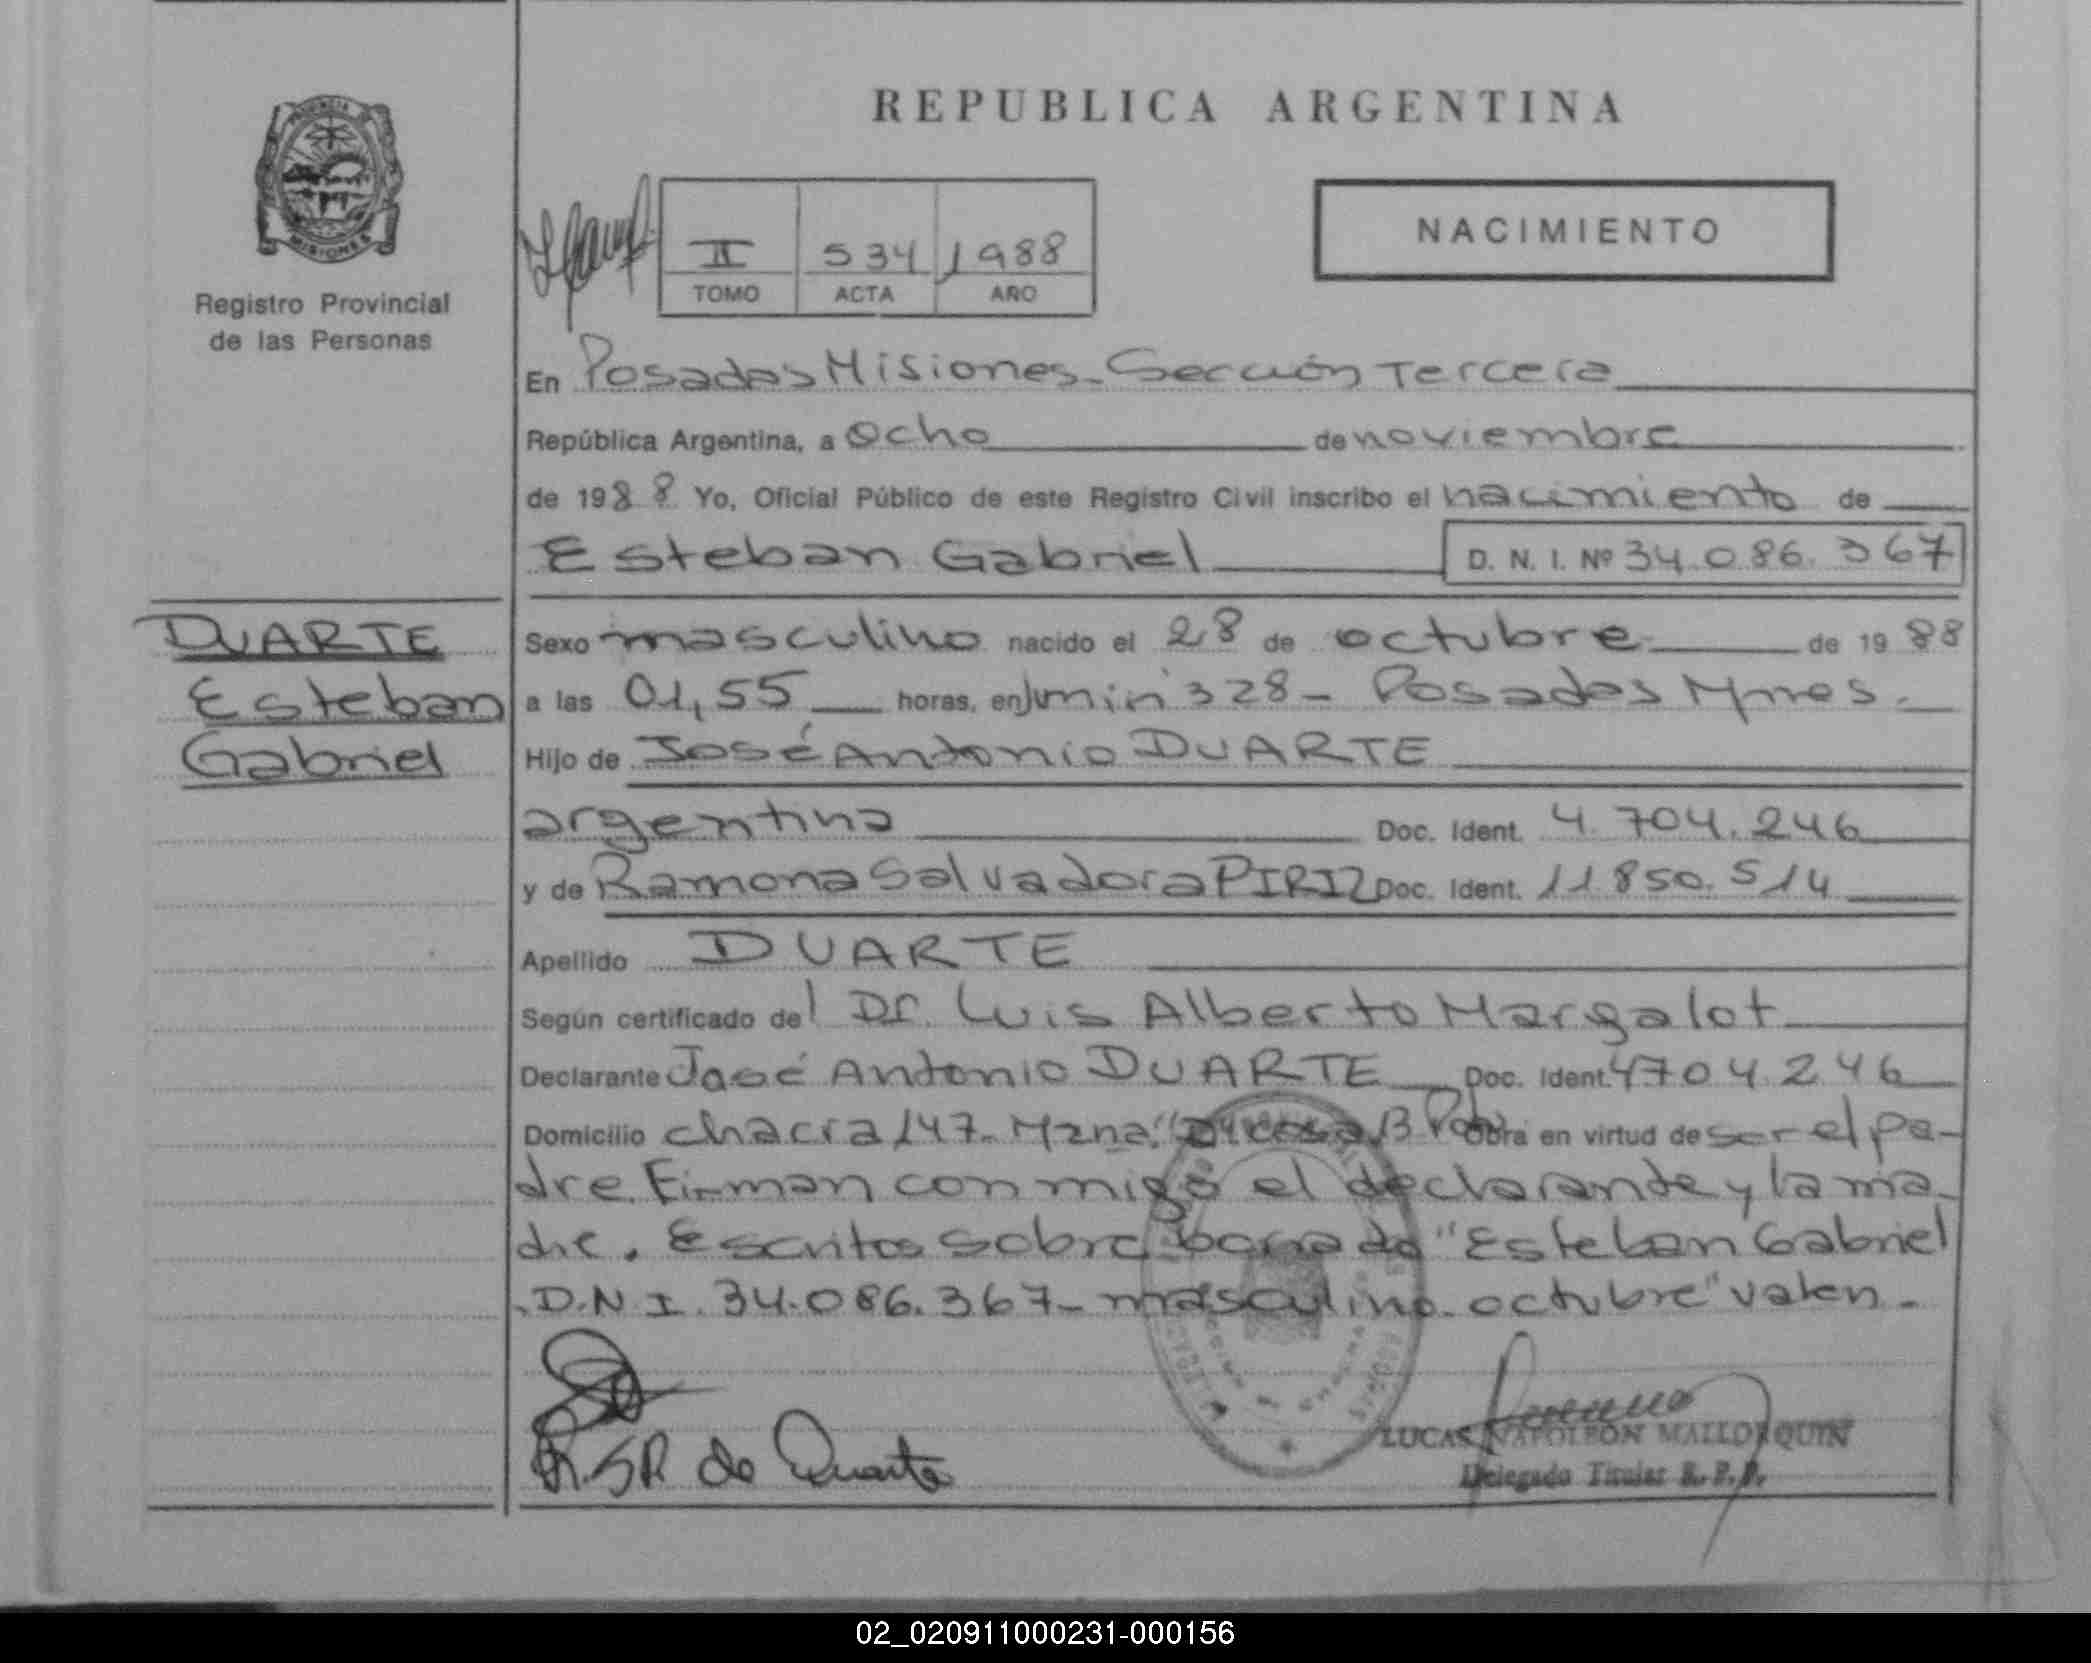 REPUBLICA ARGENTINA
PROVINCIA
MISIONES
Registro Provincial
de las Personas
II 534 1988
TOMO ACTA AÑO
NACIMIENTO
En Posadas Misiones - Sección Tercera
República Argentina, a ocho de noviembre
de 1988 Yo, Oficial Público de este Registro Civil inscribo el nacimiento de
Esteban Gabriel D. N. I. Nº 34.086.367
DUARTE
Esteban
Gabriel
Sexo masculino nacido el 28 de octubre de 1988
a las 01,55 horas, en Junin 328 - Posadas Mnes.
Hijo de José Antonio DUARTE
argentina Doc. Ident. 4.704.246
y de Ramona Salvadora PIRIZ Doc. Ident. 11.850.514
Apellido DUARTE
Según certificado del Dr. Luis Alberto Margalot
Declarante José Antonio DUARTE Doc. Ident. 4704246
Domicilio chacra 147 - Mzna. casa 13 Obra en virtud de ser el pa-
dre. Firman conmigo el declarante y la ma-
dre. Escritos sobre borrado "Esteban Gabriel
. D.N.I. 34.086.367 - masculino - octubre" valen.-
R.SR de Duarte
LUCAS NAPOLEON MALLORQUIN
Delegado Titular R. P. P.
02_020911000231-000156